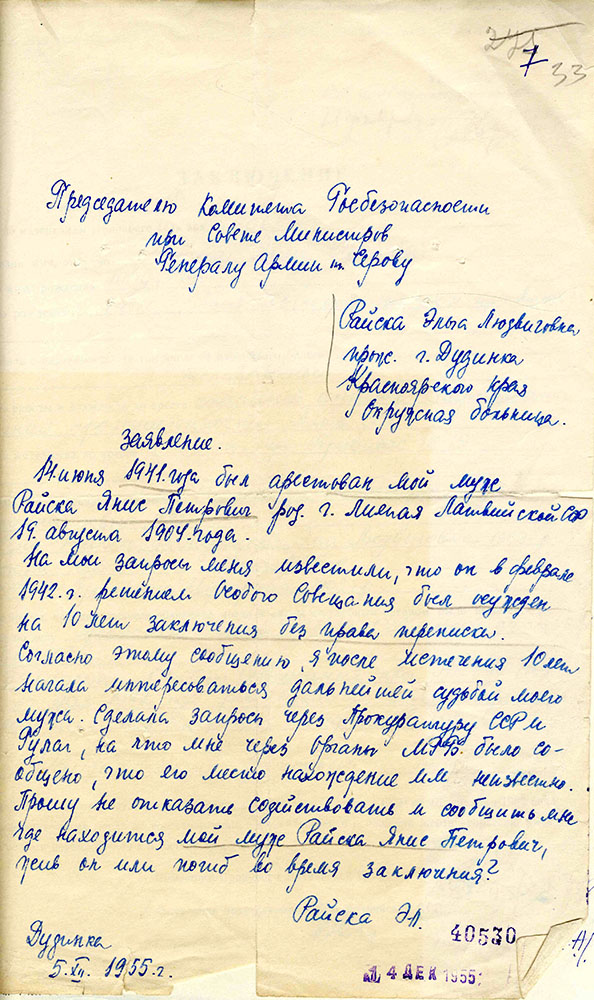 275
7
33
Председателю Комитета Госбезопасности
при Совете Министров
Генералу Армии т. Серову
Райска Эльза Людвиговна
прож. г. Дудинка
Красноярского края
Окружная больница.
Заявление.
14 июня 1941 года был арестован мой муж
Райска Янис Петрович род. г. Лиепая Латвийской ССР
19. августа 1904 года.
На мои запросы меня известили, что он в феврале
1942 г. решением Особого Совещания был осужден
на 10 лет заключения без права переписки.
Согласно этому сообщению, я после истечения 10 лет
начала интересоваться дальнейшей судьбой моего
мужа. Сделала запросы через Прокуратуру ССР и
Гулаг, на что мне через органы МГБ. было со-
общено, что его место нахождение им неизвестно.
Прошу не отказать содействовать и сообщить мне
где находится мой муж Райска Янис Петрович,
жив он или погиб во время заключения?
Райска Эл.
40530
Дудинка
5.XII. 1955 г.
14 ДЕК 1955